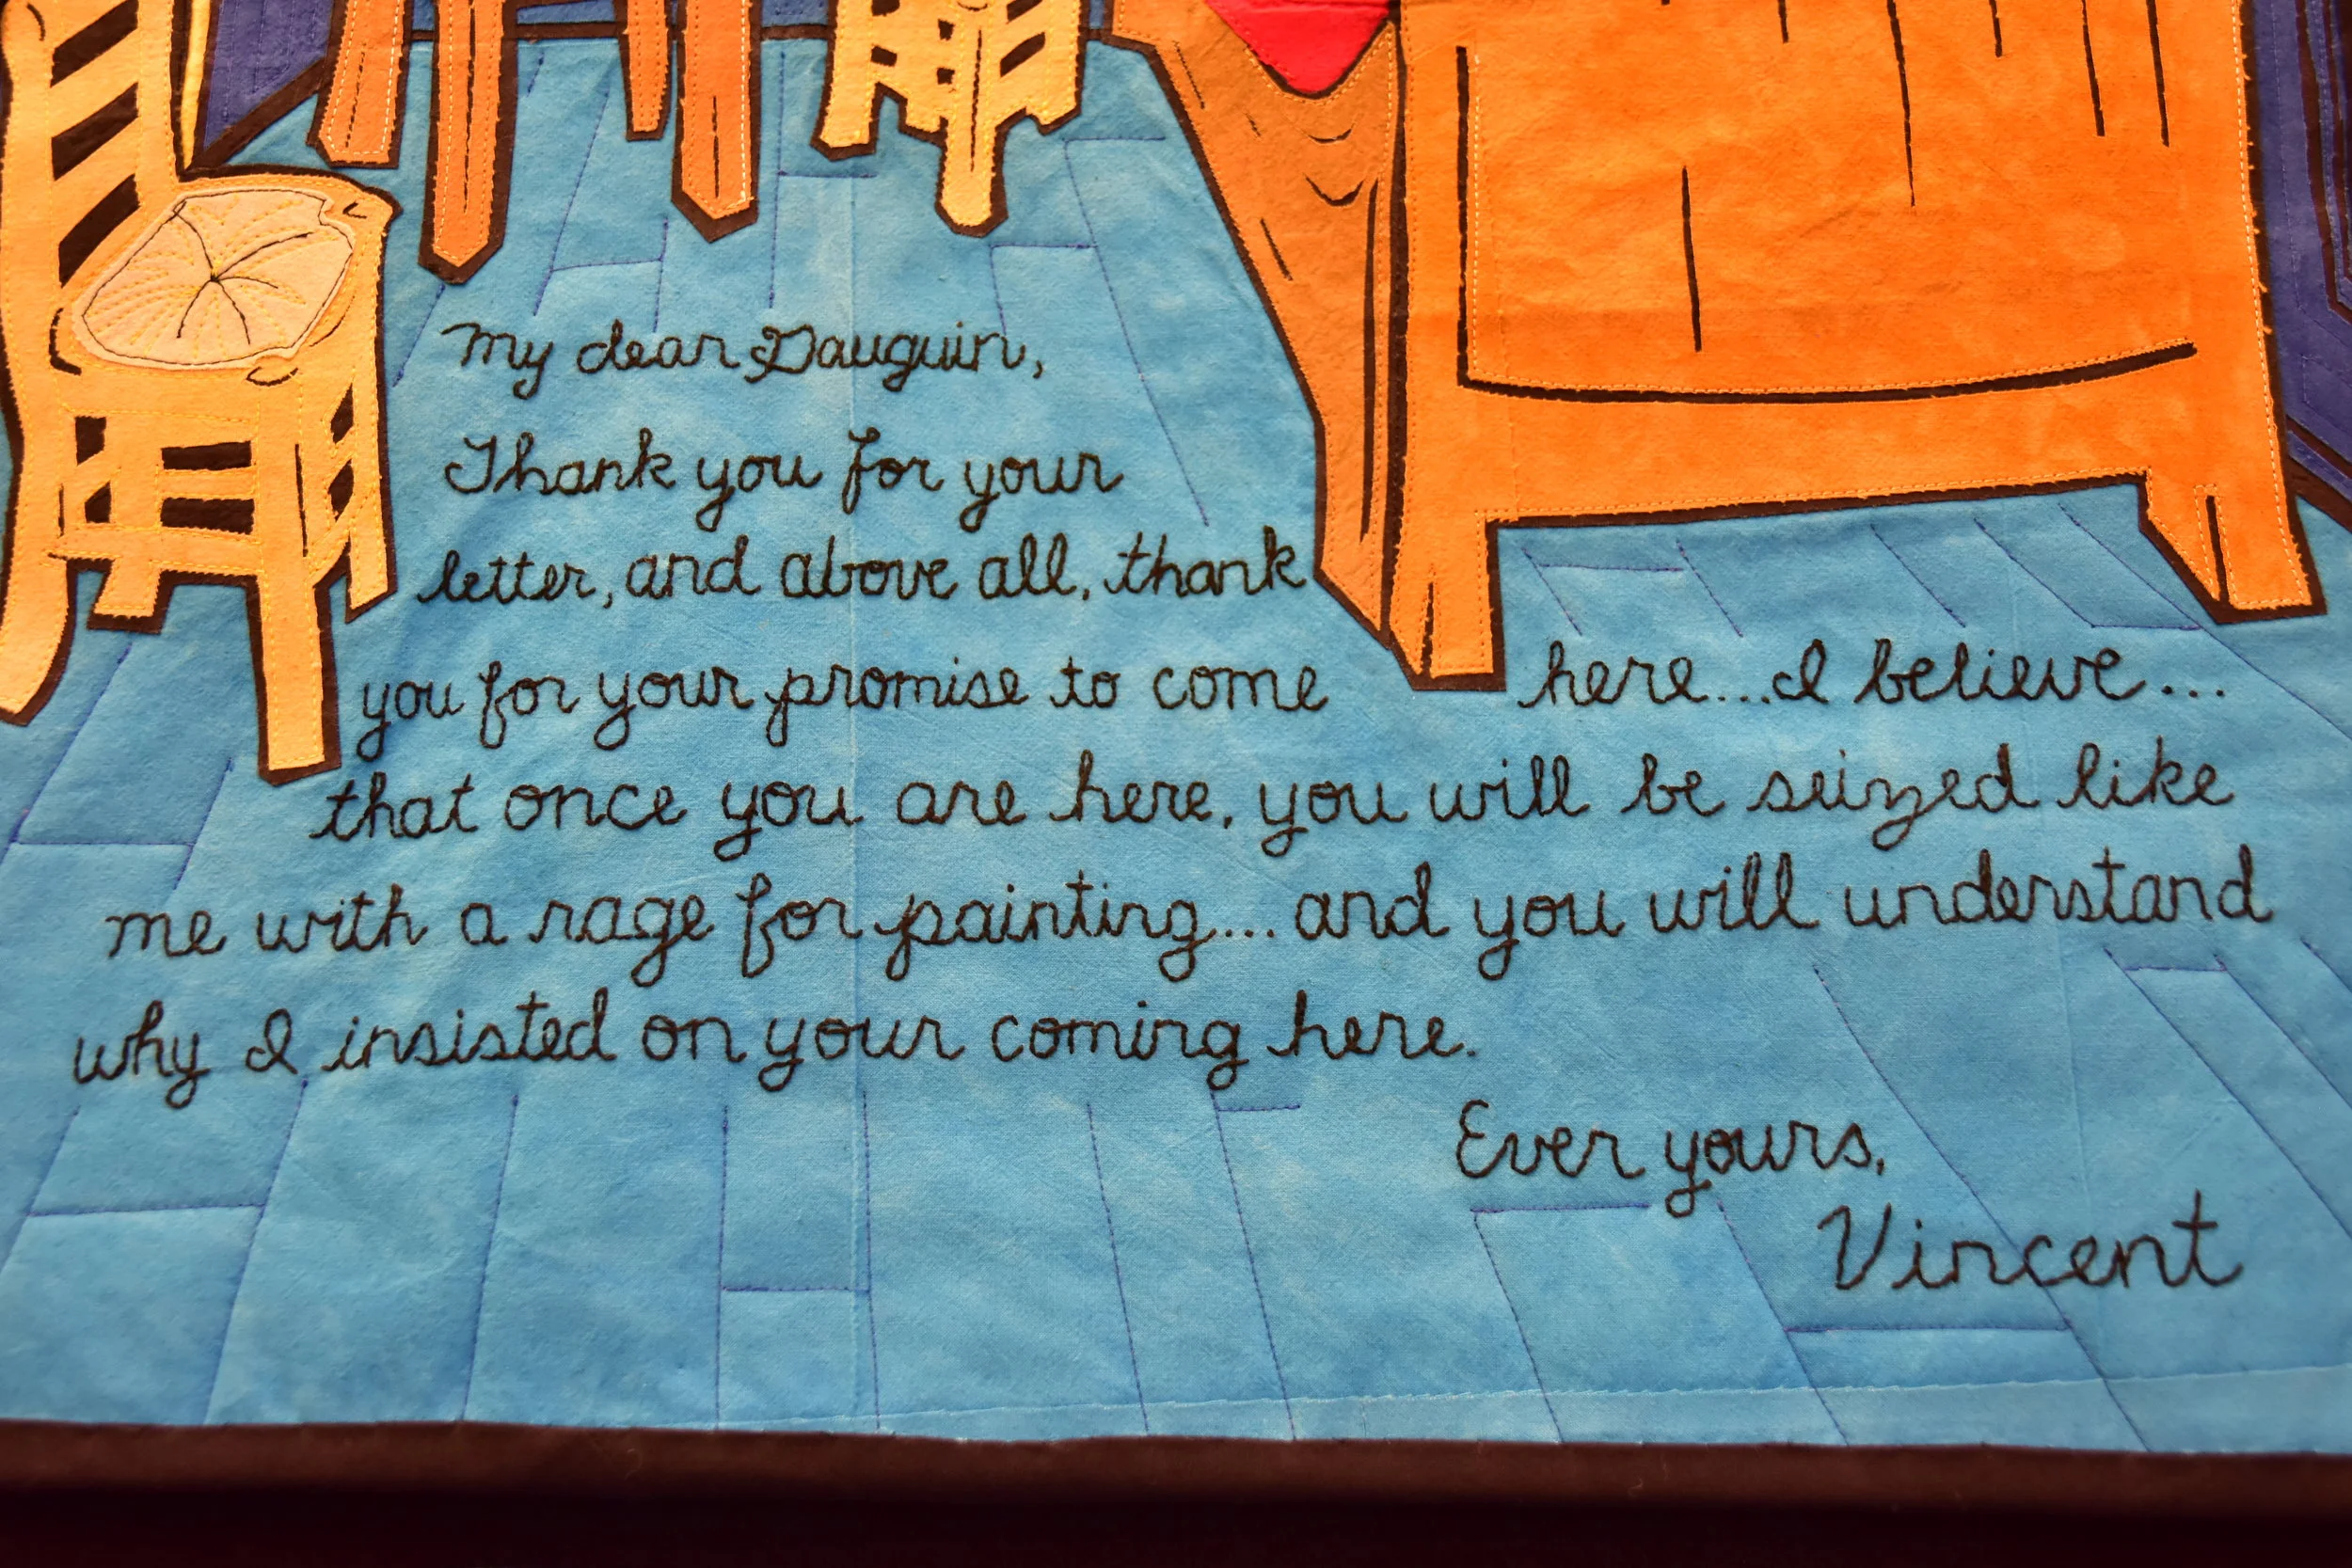 My dear Gauguin,
Thank you for your
letter, and above all, thank
you for your promise to come here...I believe...
that once you are here, you will be seized like
me with a rage for painting... and you will understand
why I insisted on your coming here.
Ever yours,
Vincent